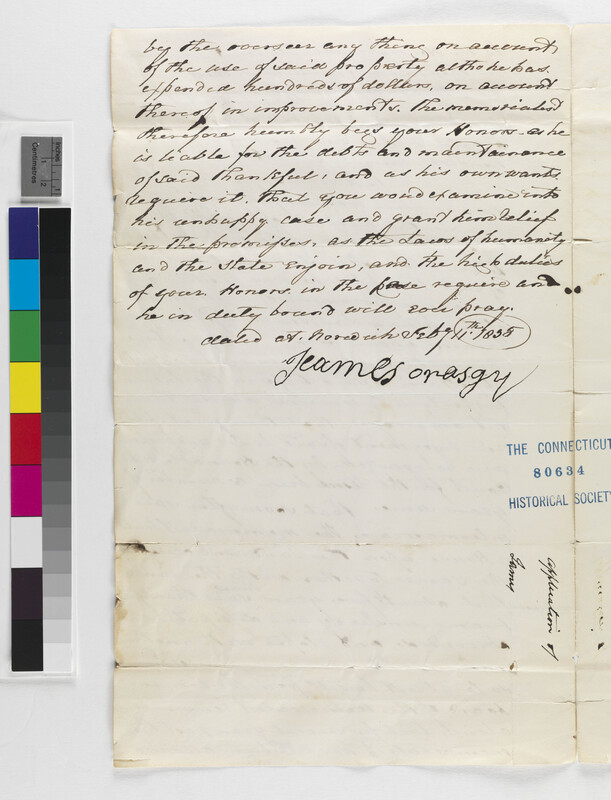 by the overseer any thing on account
of the use of said property altho he has
expended hundreds of dollars, on account
thereof in improvements. The memorialist
therefore humbly begs your Honors. as he
is leable for the debts and maintainance
of said Thankful, and as his own wants
requere it, that you would examine into
his unhappy case and grant him relief
in the premises, as the Laws of humanity
and the state enjoin, and the high duties
of your Honors in the case require and
he in duty bound will ever pray.
dated At. Norwich Feby 11th. 1835
Jeames orasgy
THE CONNECTICUT
80634
HISTORICAL SOCIETY
Application of
James
Inches
1
Centimetres
1
2